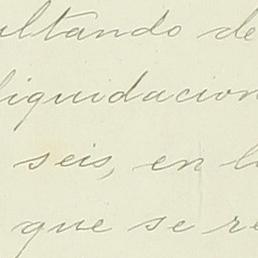 ultando de
liquidacion
seis, en l
que se re